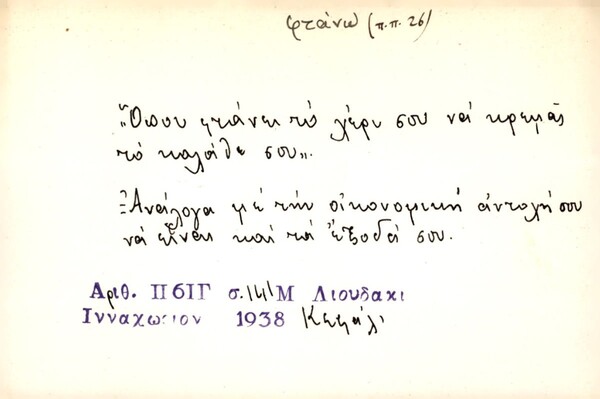 φτάνω (π.π. 26)
„Ὅπου φτάνει τό χέρι σου νά κρεμᾷς
τό καλάθι σου".
Ἀνάλογα μέ τήν οἰκονομική ἀντοχή σου
νά εἶναι καί τά ἔξοδά σου.
Αριθ. Π6ΙΓ σ. 141 Μ Λιουδακι
Ινναχωριον 1938 Κεφάλι